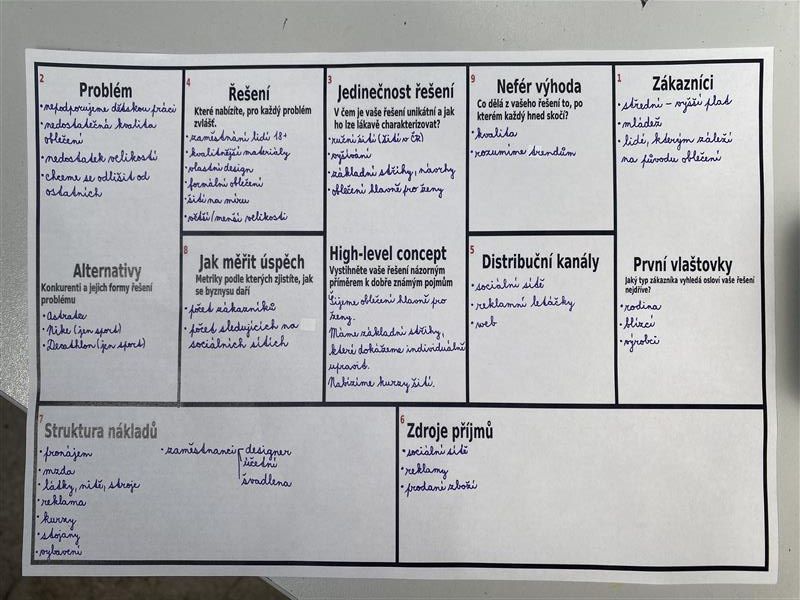 2
Problém
• nepodporujeme dětskou práci
• nedostatečná kvalita
oblečení
• nedostatek velikostí
• chceme se odlišit od
ostatních
Alternativy
Konkurenti a jejich formy řešení
problému
• Astratex
• Nike (jen sport)
• Decathlon (jen sport)
4
Řešení
Které nabízíte, pro každý problém
zvlášť.
• zaměstnání lidí 18+
• kvalitnější materiály
• vlastní design
• formální oblečení
• šití na míru
• větší/menší velikosti
8
Jak měřit úspěch
Metriky podle kterých zjistíte, jak
se byznysu daří
• počet zákazníků
• počet sledujících na
sociálních sítích
3
Jedinečnost řešení
V čem je vaše řešení unikátní a jak
ho lze lákavě charakterizovat?
• ruční šití (šití v ČR)
• vyšívání
• základní střihy, návrhy
• oblečení hlavně pro ženy
High-level concept
Vystihněte vaše řešení názorným
příměrem k dobře známým pojmům
Šijeme oblečení hlavně pro
ženy.
Máme základní střihy,
které dokážeme individuálně
upravit.
Nabízíme kurzy šití.
9
Nefér výhoda
Co dělá z vašeho řešení to, po
kterém každý hned skočí?
• kvalita
• rozumíme trendům
5
Distribuční kanály
• sociální sítě
• reklamní letáčky
• web
1
Zákazníci
• střední - vyšší plat
• mládež
• lidé, kterým záleží
na původu oblečení
První vlaštovky
Jaký typ zákazníka vyhledá osloví vaše řešení
nejdříve?
• rodina
• blízcí
• výrobci
7
Struktura nákladů
• pronájem
• mzda
• látky, nitě, stroje
• reklama
• kurzy
• stojany
• vybavení
• zaměstnanci - designer
účetní
švadlena
6
Zdroje příjmů
• sociální sítě
• reklamy
• prodané zboží